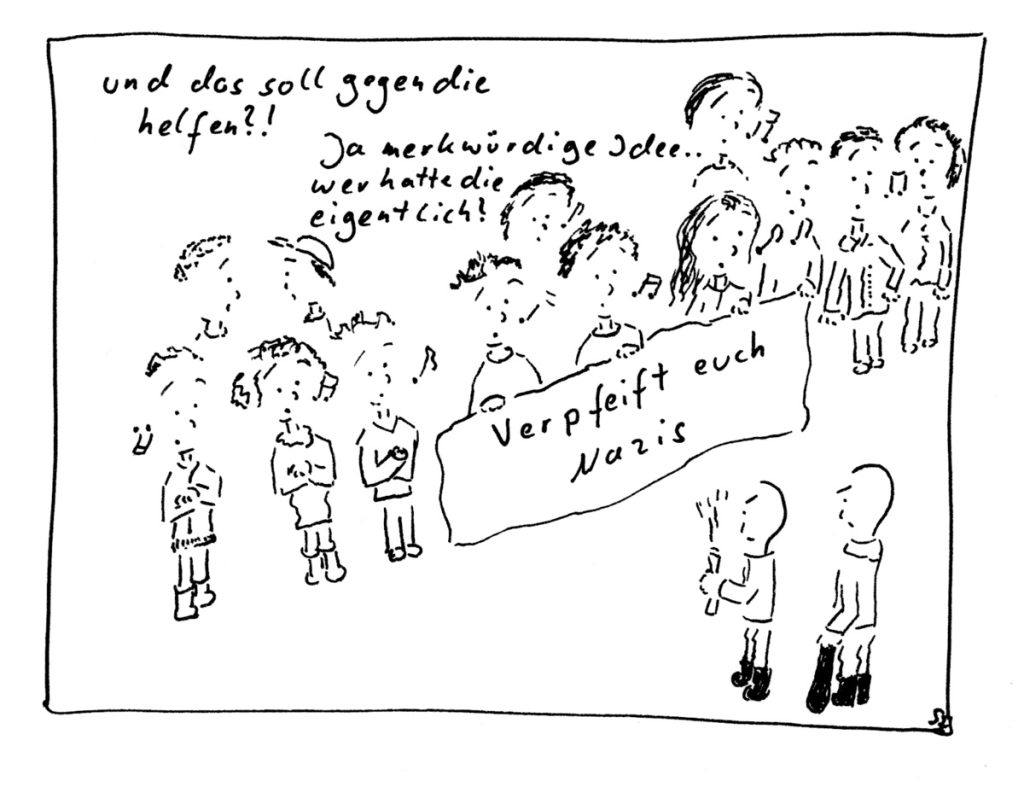 und das soll gegen die
helfen?!
Ja merkwürdige Idee..
wer hatte die
eigentlich?
Verpfeift euch
Nazis